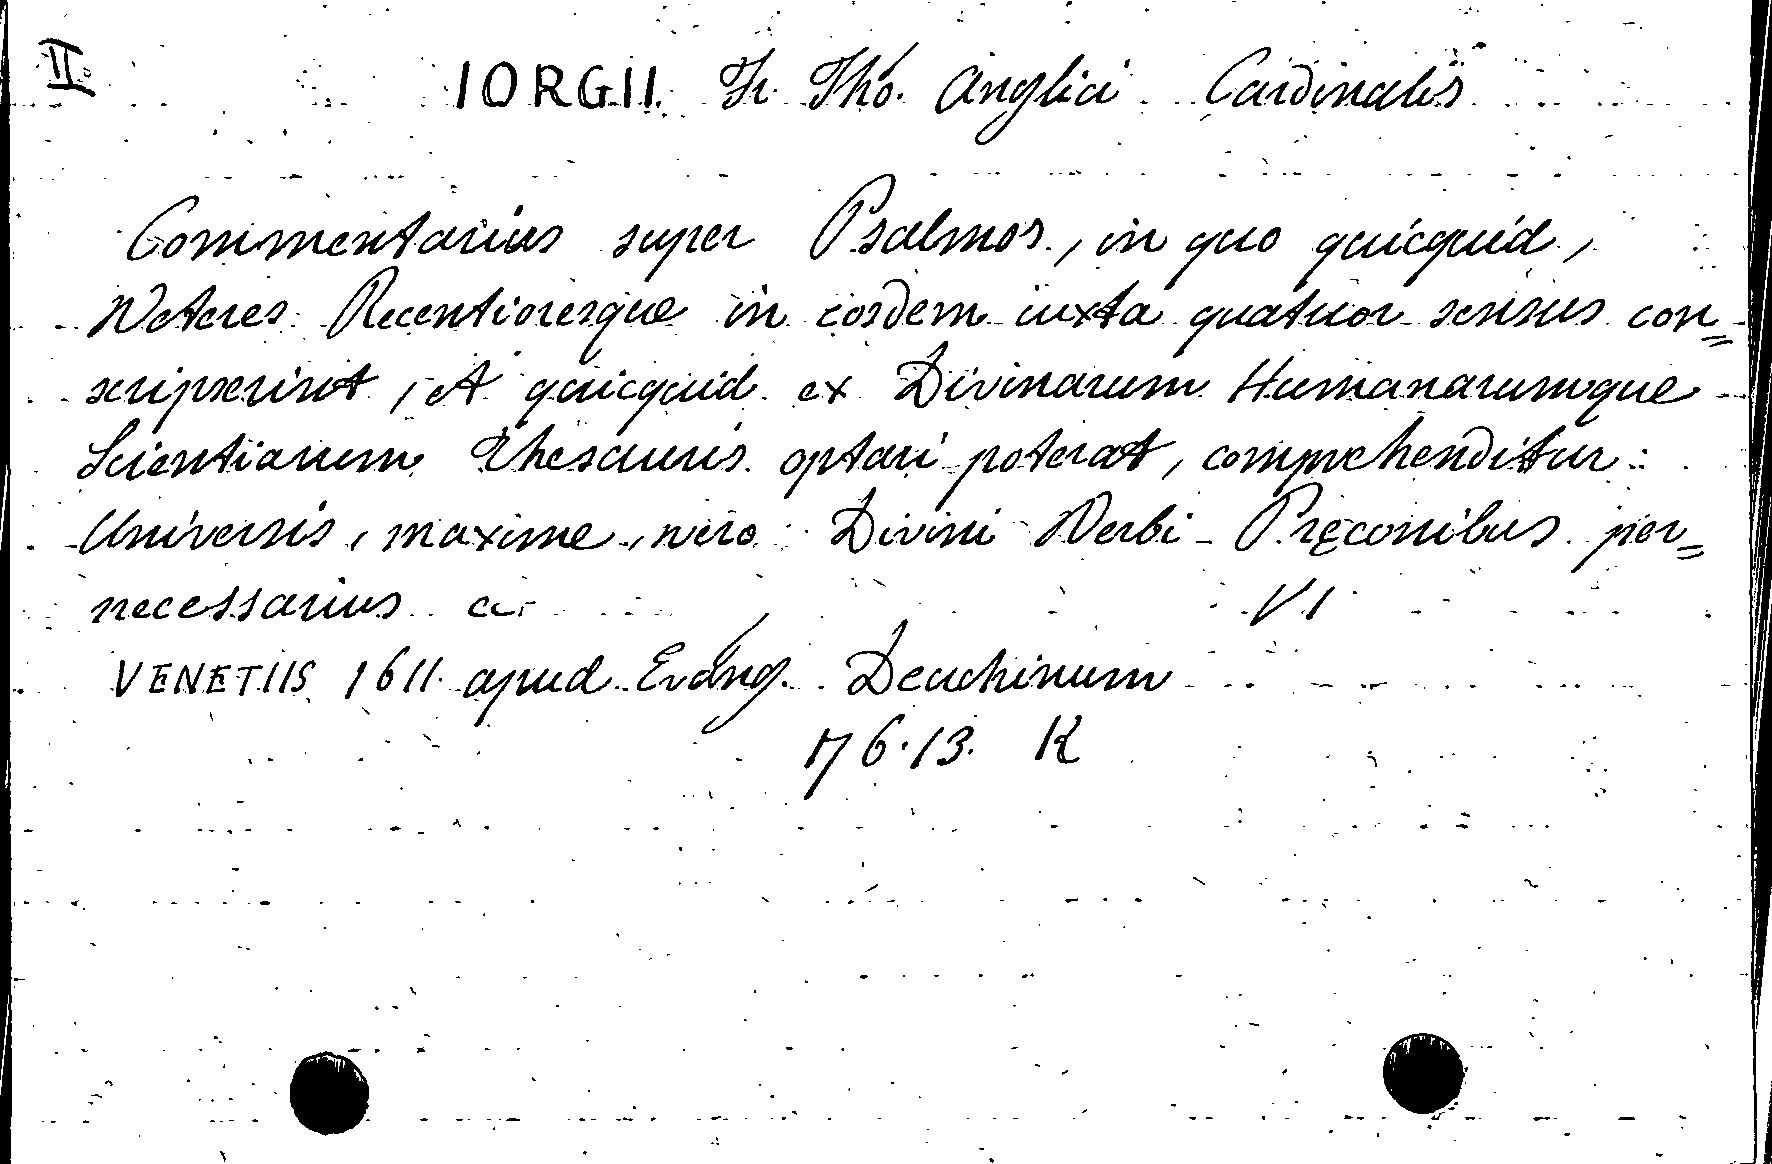 II.
IORGII Fr. Thó. Anglici Cardinalis
Commentarius super Psalmos, in quo quicquid,
Veteres Recentioresque in eosdem iuxta quatuor sensus con=
scripserint, et quicquid ex Divinarum Humanarumque
Scientiarum Thesauris optari poterat, comprehenditur:
Universis, maxime, vero Divini Verbi Pręconibus per=
necessarius VI
VENETIIS 1611 apud Evang. Deuchinum
176.13. K